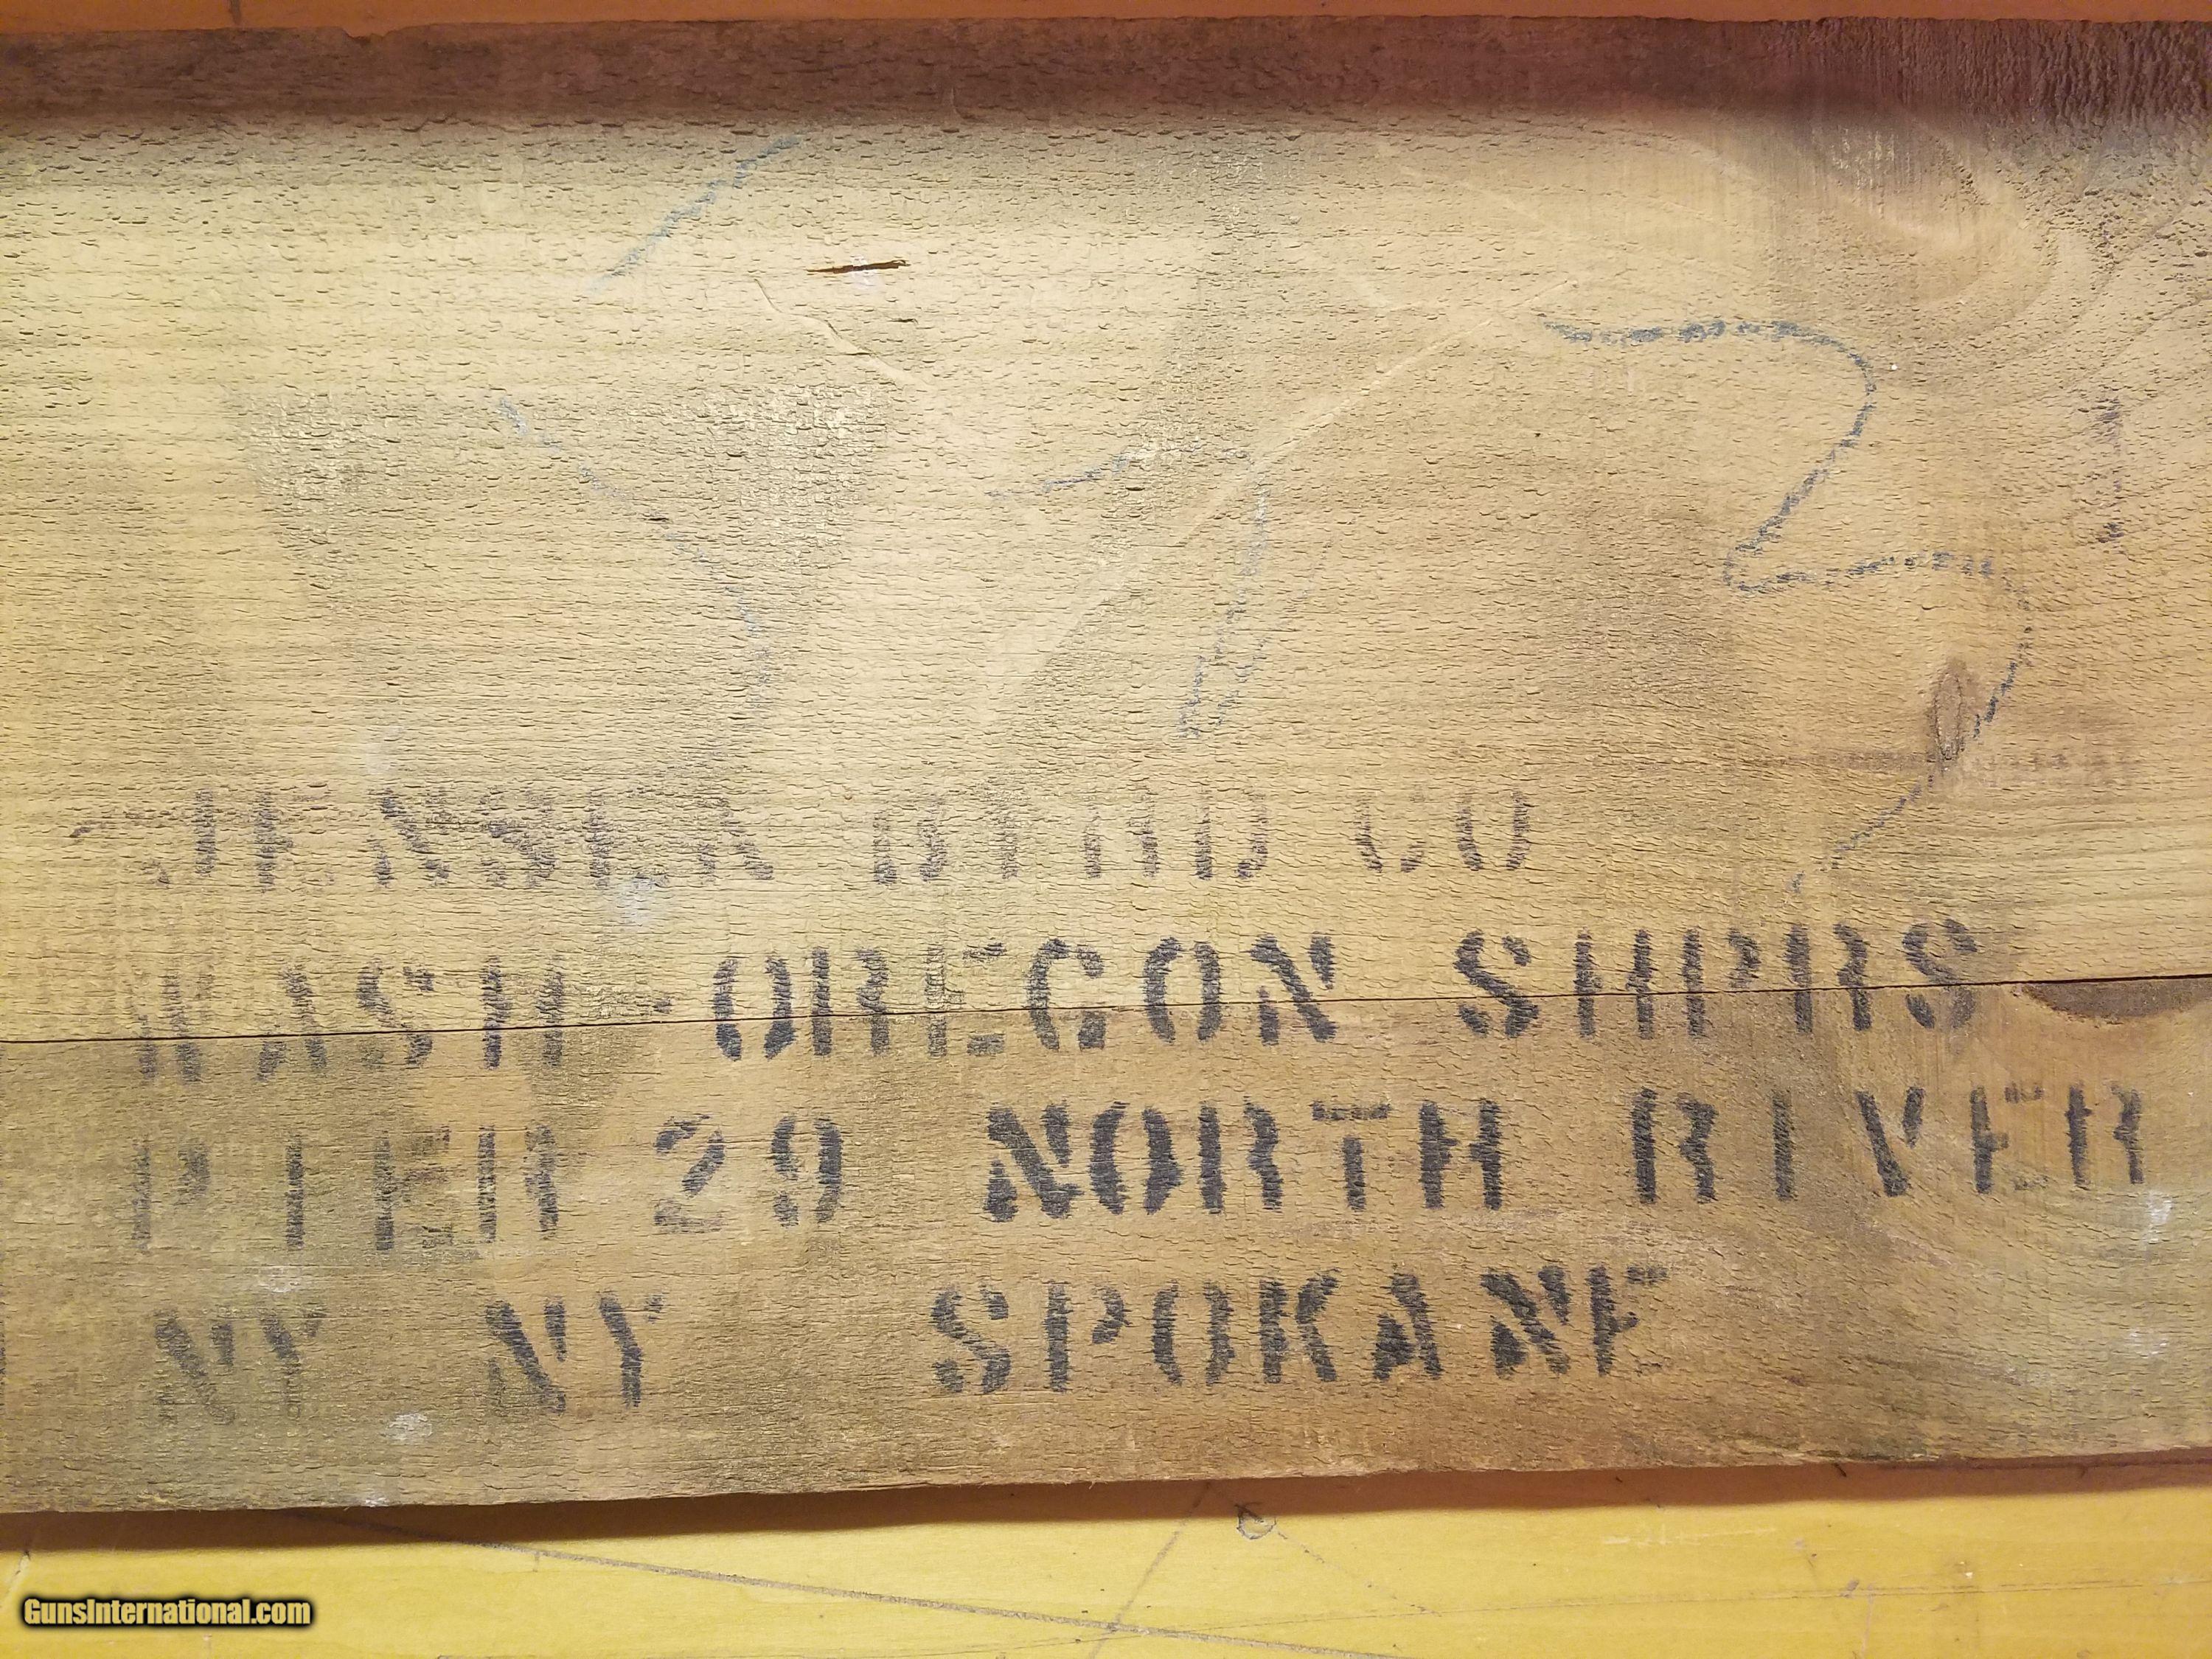 JENSEN BYRD CO
WASH-OREGON SHPRS
PIER 29 NORTH RIVER
NY NY SPOKANE
GunsInternational.com